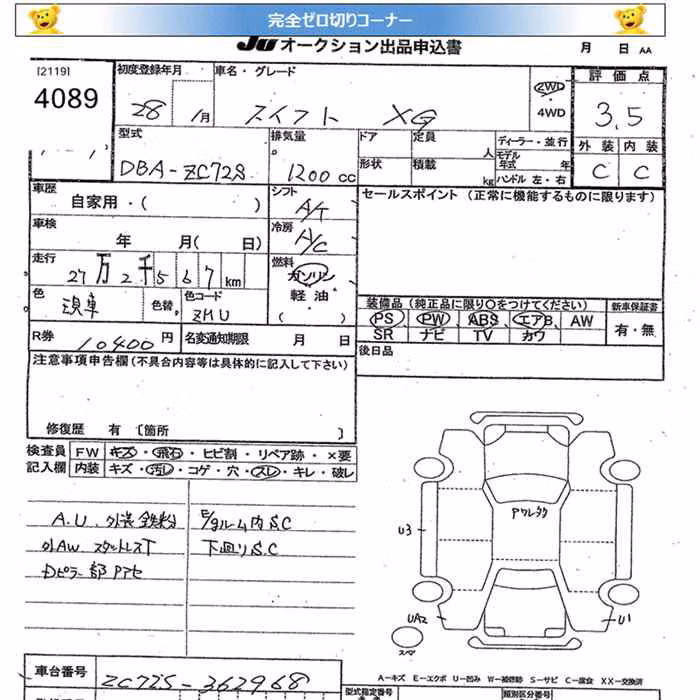 完全ゼロ切りコーナー
JU オークション出品申込書 月 日 AA
[2119]
4089
初度登録年月 28 1月
車名・グレード スイフト XG
2WD
4WD
評価点 3.5
外装 内装
C C
型式 DBA-ZC72S
排気量 1200 cc
ドア 定員 人
形状 積載 kg
ディーラー・並行
モデル年式 年
ハンドル 左・右
車歴 自家用・( )
シフト A/T
セールスポイント (正常に機能するものに限ります)
車検 年 月( 日)
冷房 A/C
走行 27万2千567km
燃料 ガソリン
軽油・
( )
色 現車 色替
色コード ZMU
装備品(純正品に限り○をつけてください) 新車保証書
PS PW ABS エアB AW 有・無
SR ナビ TV カワ
R券 10400円
名変通知期限 月 日
後日品
注意事項申告欄(不具合内容等は具体的に記入して下さい)
修復歴 有 [箇所 ]
検査員記入欄
FW キズ・飛石・ヒビ割・リペア跡・×要
内装 キズ・汚レ・コゲ・穴・スレ・キレ・破レ
A.U. 外装鉄粉
外AW スタットレスT
Dピラー部Pアセ
E/gルーム内S.C
下廻りS.C
Pクレタク
U3
UA2
U1
スペア
A-キズ E-エクボ U-凹み W-補修跡 S-サビ C-腐食 XX-交換済
車台番号 ZC72S-362968
型式指定番号
類別区分番号